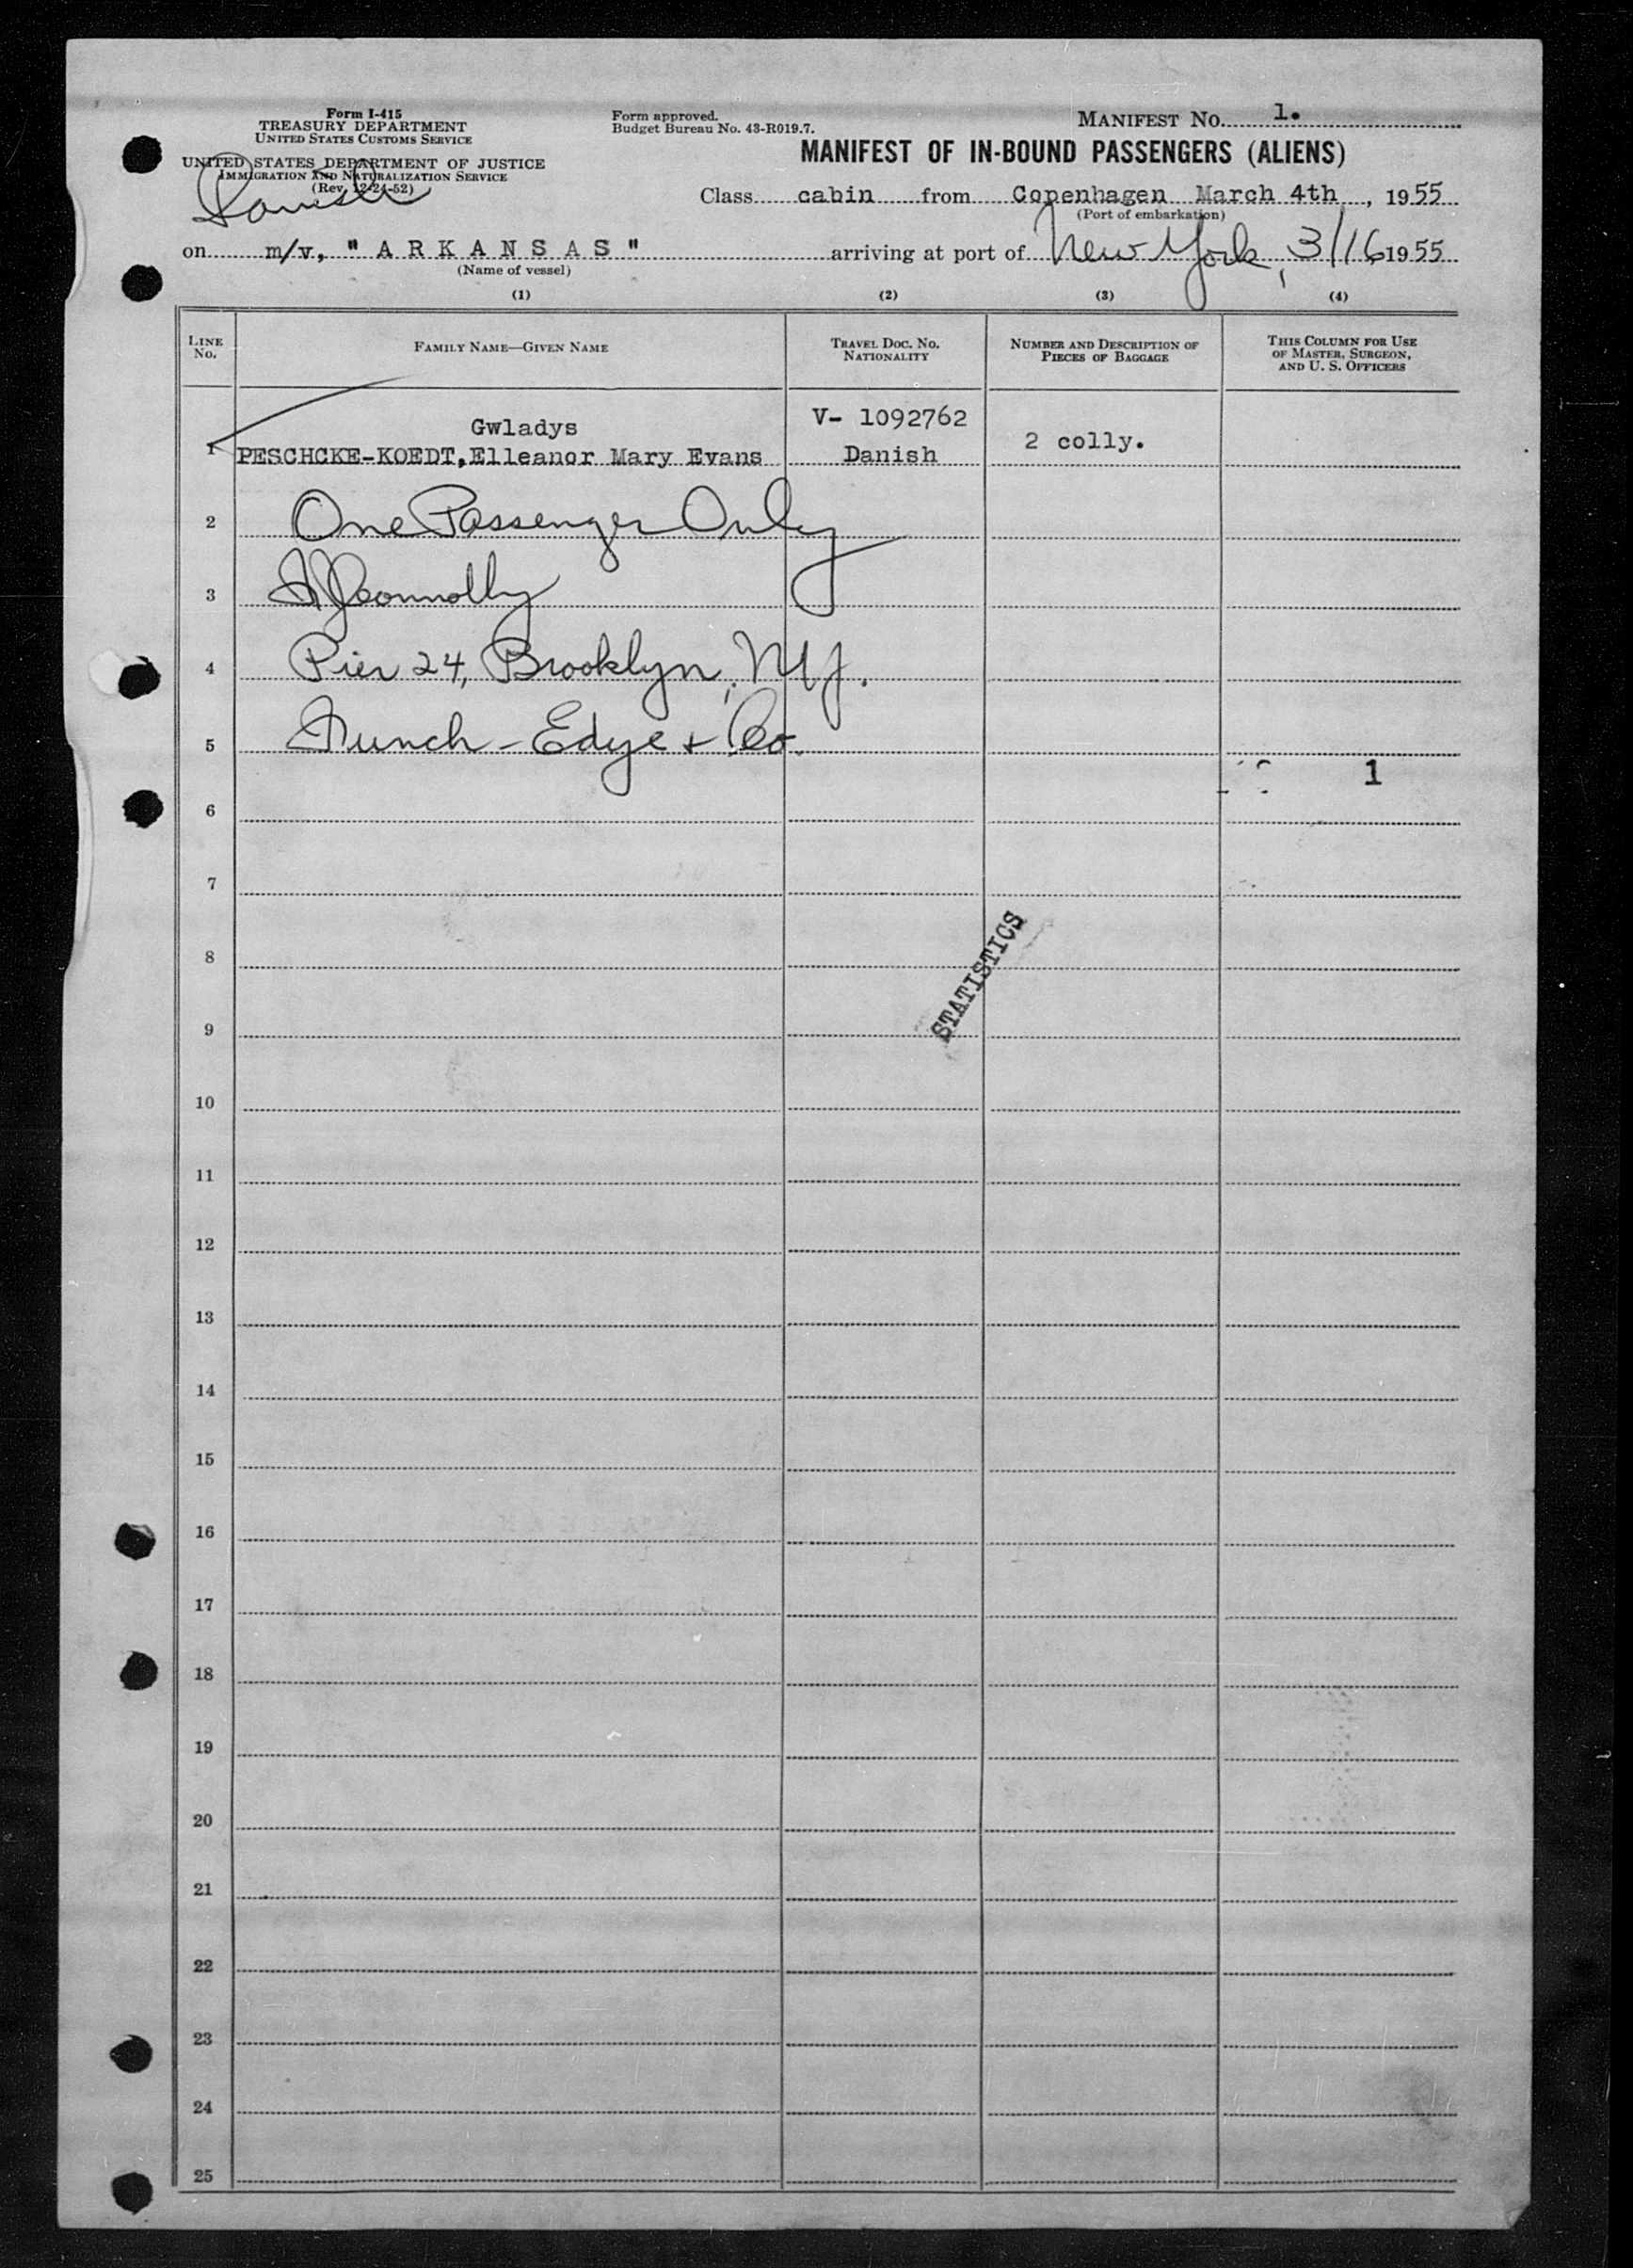 Form I-415
TREASURY DEPARTMENT
UNITED STATES CUSTOMS SERVICE
UNITED STATES DEPARTMENT OF JUSTICE
IMMIGRATION AND NATURALIZATION SERVICE
(Rev. 12-24-52)
Danish
Form approved.
Budget Bureau No. 43-R019.7.
MANIFEST NO. 1.
MANIFEST OF IN-BOUND PASSENGERS (ALIENS)
Class cabin from Copenhagen March 4th, 1955
(Port of embarkation)
on m/v, "ARKANSAS" arriving at port of New York, 3/16 1955
(Name of vessel)
(1) (2) (3) (4)
LINE NO. FAMILY NAME—GIVEN NAME TRAVEL DOC. NO. NATIONALITY NUMBER AND DESCRIPTION OF PIECES OF BAGGAGE THIS COLUMN FOR USE OF MASTER, SURGEON, AND U. S. OFFICERS
Gwladys V- 1092762
1 PESCHCKE-KOEDT, Elleanor Mary Evans Danish 2 colly.
2 One Passenger Only
3 Connolly
4 Pier 24, Brooklyn, N.Y.
5 Funch-Edye & Co.
1
6
7
8
STATISTICS
9
10
11
12
13
14
15
16
17
18
19
20
21
22
23
24
25